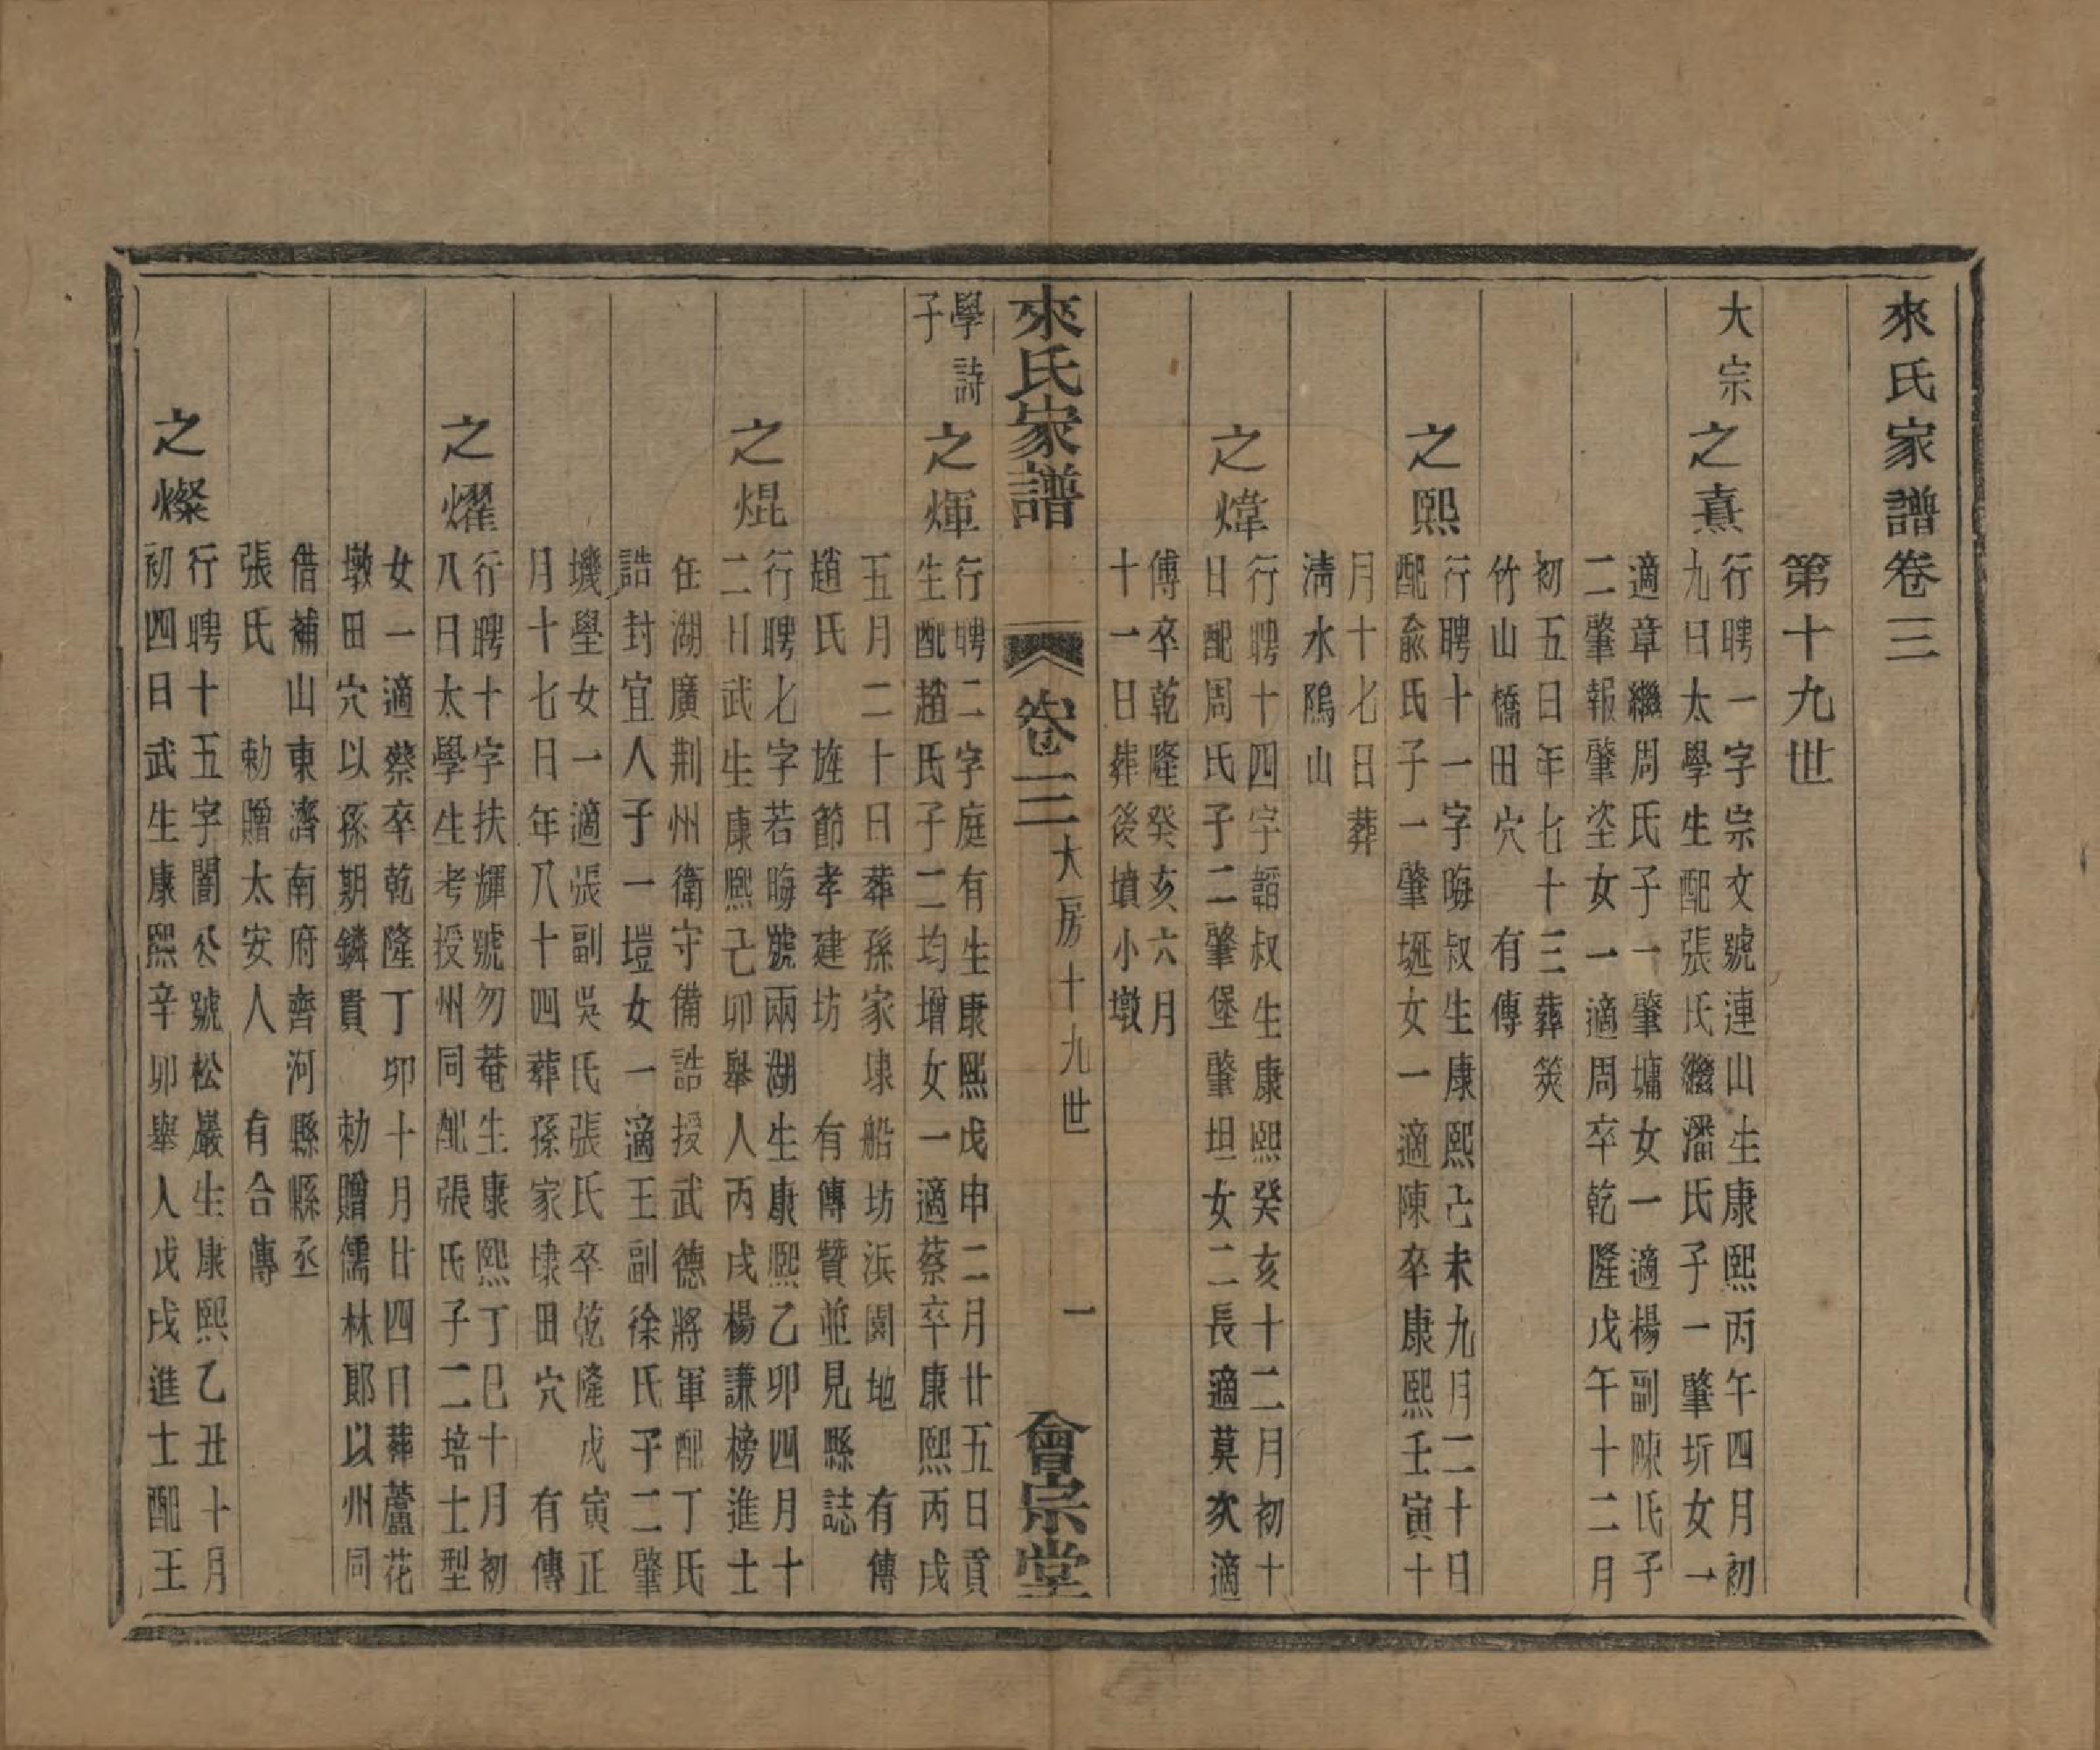 來氏家譜卷三
第十九世
大宗
之熹
行聘一字宗文號連山生康熙丙午四月初
九日太學生配張氏繼潘氏子一肇圻女一
適章繼周氏子一肇墉女一適楊副陳氏子
二肇報肇垐女一適周卒乾隆戊午十二月
初五日年七十三葬筴
竹山橋田穴　有傳
之熙
行聘十一字晦叔生康熙己未九月二十日
配兪氏子一肇埏女一適陳卒康熙壬寅十
月十七日葬
淸水隝山
之煒
行聘十四字韜叔生康熙癸亥十二月初十
日配周氏子二肇堡肇坦女二長適莫次適
傅卒乾隆癸亥六月
十一日葬後墳小墩
來氏家譜　卷三　大房十九世　一　會宗堂
學詩
子
之煇
行聘二字庭有生康熙戊申二月廿五日貢
生配趙氏子二均增女一適蔡卒康熙丙戌
五月二十日葬孫家埭船坊浜園地　有傳
趙氏　旌節孝建坊　有傳贊並見縣誌
之焜
行聘七字若晦號兩湖生康熙乙卯四月十
二日武生康熙己卯舉人丙戌楊謙榜進士
任湖廣荆州衛守備誥授武德將軍配丁氏
誥封宜人子一塏女一適王副徐氏子二肇
璣壆女一適張副吳氏張氏卒乾隆戊寅正
月十七日年八十四葬孫家埭田穴　有傳
之燿
行聘十字扶輝號勿菴生康熙丁巳十月初
八日太學生考授州同配張氏子二培士型
女一適蔡卒乾隆丁卯十月廿四日葬蘆花
墩田穴以孫期鏻貴　勅贈儒林郞以州同
借補山東濟南府齊河縣縣丞
張氏　勅贈太安人　有合傳
之燦
行聘十五字闇公號松巖生康熙乙丑十月
初四日武生康熙辛卯舉人戊戌進士配王